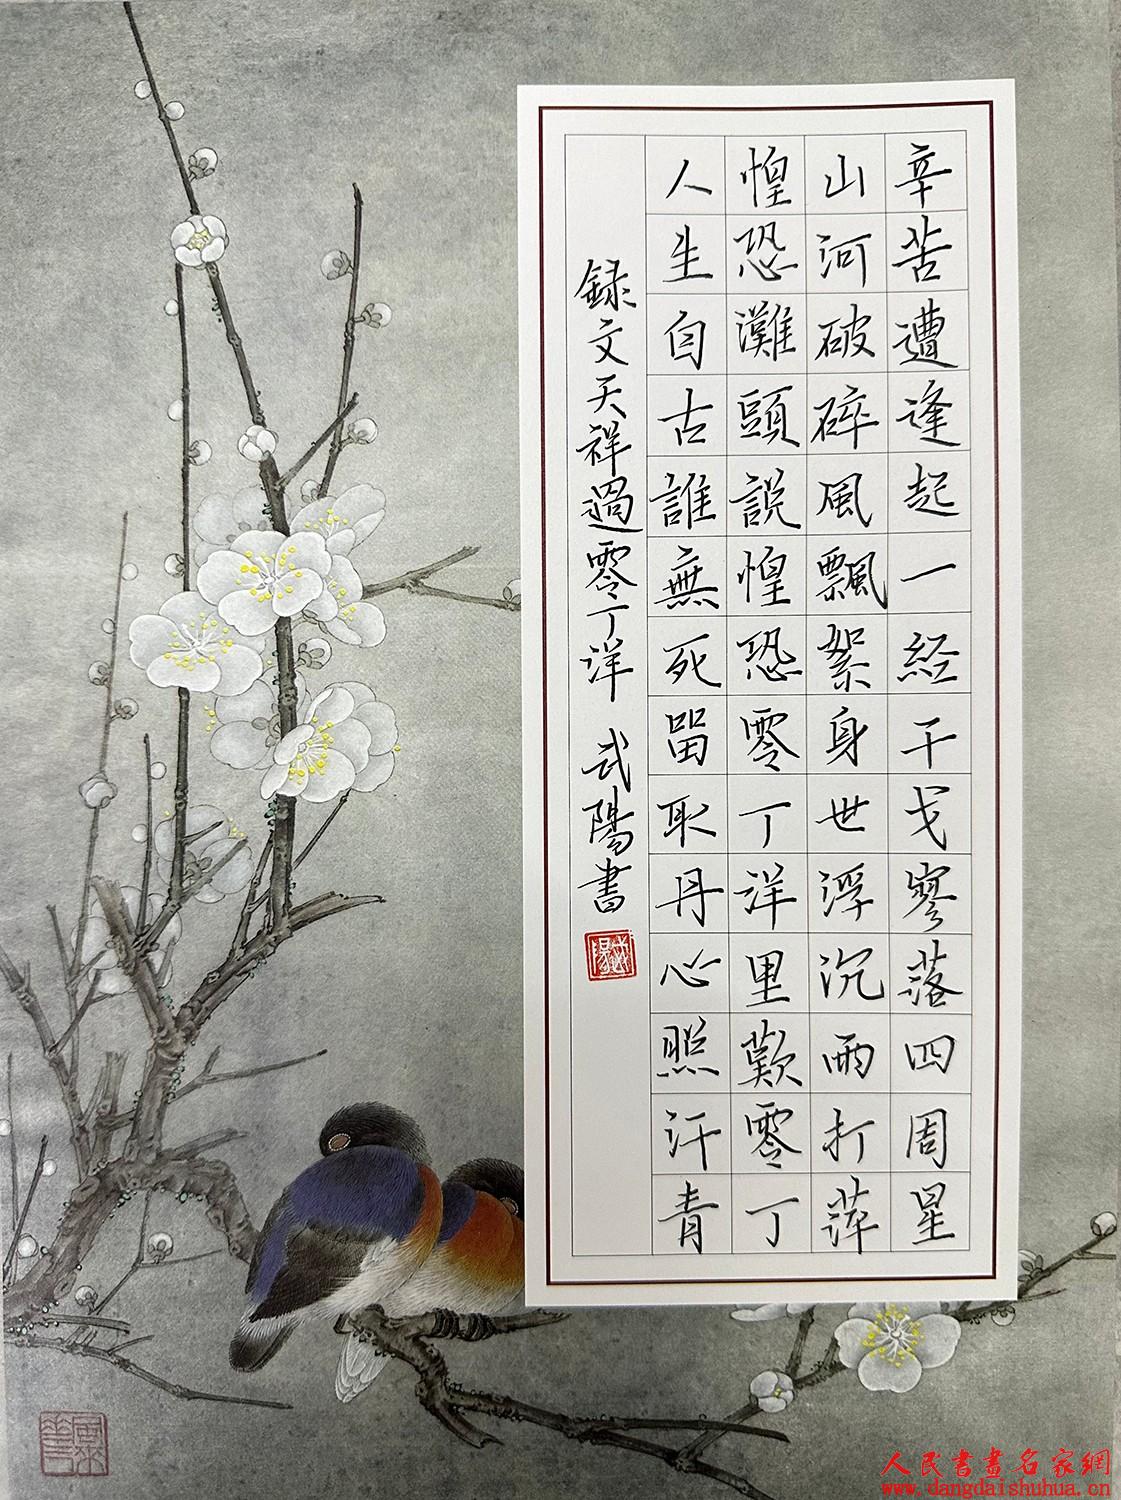 辛苦遭逢起一経干戈寥落四周星
山河破碎風飄絮身世浮沉雨打萍
惶恐灘頭説惶恐零丁洋里歎零丁
人生自古誰無死留取丹心照汗青
録文天祥過零丁洋 武陽書
人民書畫名家網
www.dangdaishuhua.cn